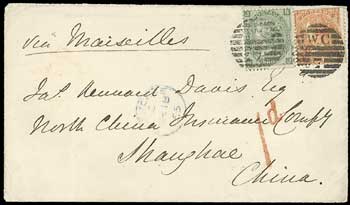 via Marseilles
WC
Jas. Kennard Davis Esq
North China Insurance Compy
1d.
Shanghae
China.